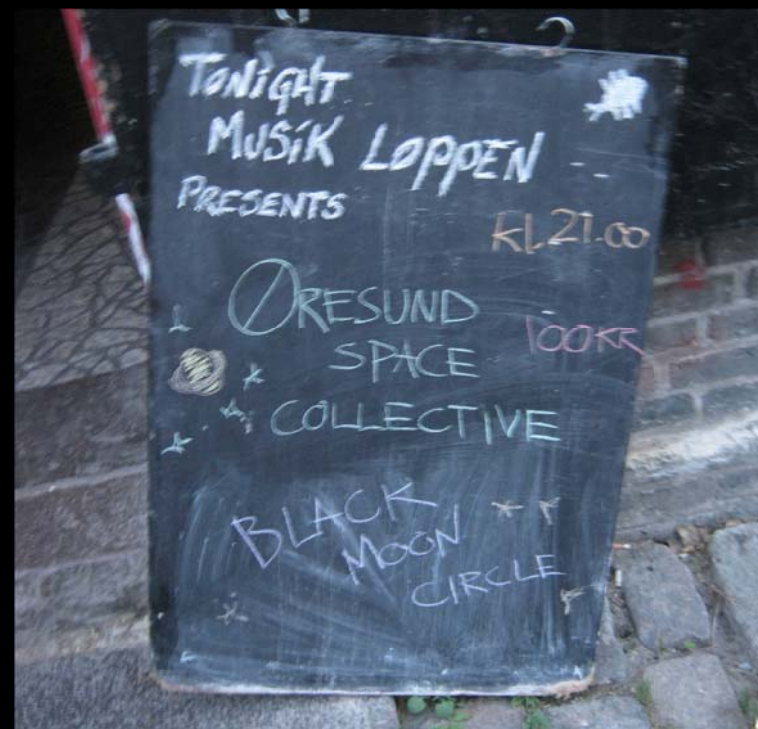 TONiGHT
MUSiK LOPPEN
PRESENTS
KL 21.00
ØRESUND
SPACE
100KR
COLLECTIVE
BLACK
MOON
CIRCLE